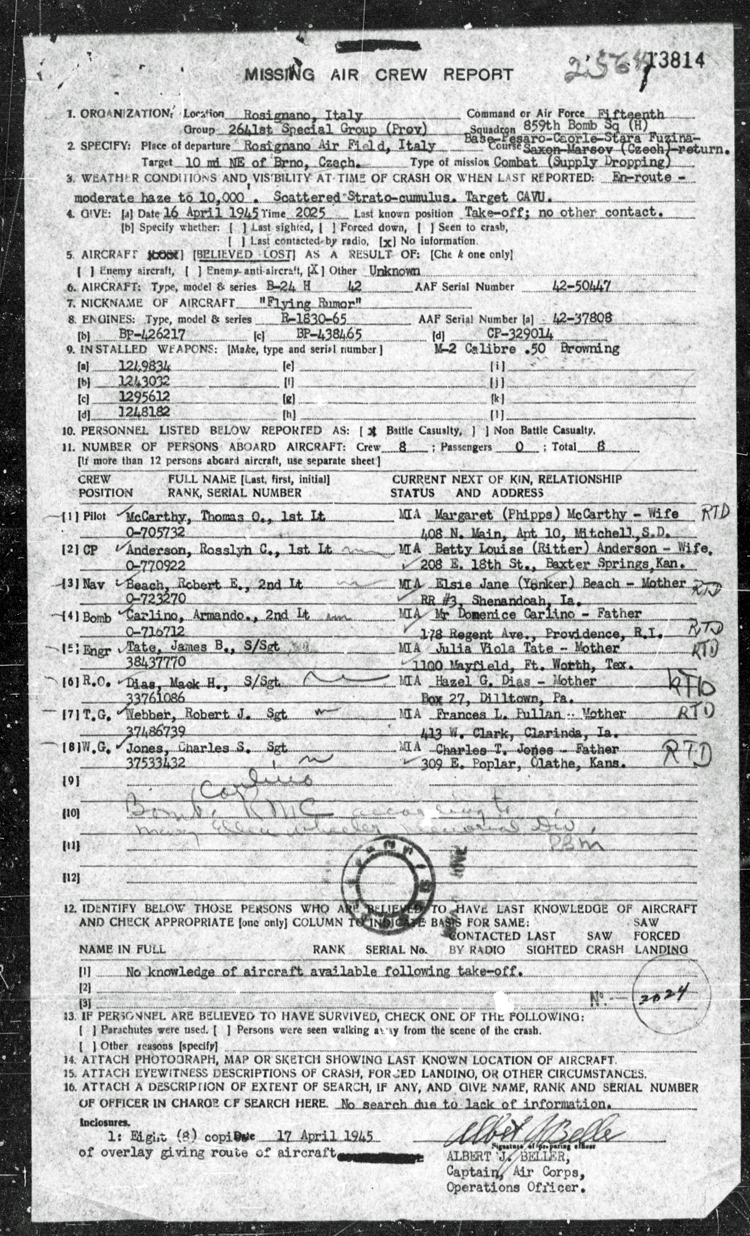 MISSING AIR CREW REPORT
13814
1. ORGANIZATION: Location Rosignano, Italy Command or Air Force Fifteenth
Group 2641st Special Group (Prov) Squadron 859th Bomb Sq (H)
2. SPECIFY: Place of departure Rosignano Air Field, Italy Course Base-Pesaro-Caorle-Stara Fuzina-Saxen-Marsov (Czech)-return.
Target 10 mi NE of Brno, Czech. Type of mission Combat (Supply Dropping)
3. WEATHER CONDITIONS AND VISIBILITY AT TIME OF CRASH OR WHEN LAST REPORTED: En-route -
moderate haze to 10,000'. Scattered Strato-cumulus. Target CAVU.
4. GIVE: [a] Date 16 April 1945 Time 2025 Last known position Take-off; no other contact.
[b] Specify whether: [ ] Last sighted, [ ] Forced down, [ ] Seen to crash,
[ ] Last contacted by radio, [x] No information.
5. AIRCRAFT [BELIEVED LOST] AS A RESULT OF: [Che k one only]
[ ] Enemy aircraft, [ ] Enemy anti-aircraft, [X] Other Unknown
6. AIRCRAFT: Type, model & series B-24 H 42 AAF Serial Number 42-50447
7. NICKNAME OF AIRCRAFT "Flying Rumor"
8. ENGINES: Type, model & series R-1830-65 AAF Serial Number [a] 42-37808
[b] BP-426217 [c] BP-438465 [d] CP-329014
9. INSTALLED WEAPONS: [Make, type and serial number] M-2 Calibre .50 Browning
[a] 1249834 [e] [i]
[b] 1243032 [f] [j]
[c] 1295612 [g] [k]
[d] 1248182 [h] [l]
10. PERSONNEL LISTED BELOW REPORTED AS: [x] Battle Casualty, [ ] Non Battle Casualty.
11. NUMBER OF PERSONS ABOARD AIRCRAFT: Crew 8 ; Passengers 0 ; Total 8
[If more than 12 persons aboard aircraft, use separate sheet]
CREW FULL NAME [Last, first, initial] CURRENT NEXT OF KIN, RELATIONSHIP
POSITION RANK, SERIAL NUMBER STATUS AND ADDRESS
[1] Pilot McCarthy, Thomas O., 1st Lt MIA Margaret (Phipps) McCarthy - Wife RTD
O-705732 408 N. Main, Apt 10, Mitchell, S.D.
[2] CP Anderson, Rosslyn C., 1st Lt MIA Betty Louise (Ritter) Anderson - Wife.
O-770922 208 E. 18th St., Baxter Springs, Kan.
[3] Nav Beach, Robert E., 2nd Lt MIA Elsie Jane (Yonker) Beach - Mother RTD
O-723270 RR #3, Shenandoah, Ia.
[4] Bomb Carlino, Armando., 2nd Lt MIA Mr Domenice Carlino - Father
O-716712 178 Regent Ave., Providence, R.I. RTD
[5] Engr Tate, James B., S/Sgt MIA Julia Viola Tate - Mother RTD
38437770 1100 Mayfield, Ft. Worth, Tex.
[6] R.O. Dias, Mack H., S/Sgt MIA Hazel G. Dias - Mother RTD
33761086 Box 27, Dilltown, Pa.
[7] T.G. Webber, Robert J. Sgt MIA Frances L. Pullan - Mother RTD
37486739 413 W. Clark, Clarinda, Ia.
[8] W.G. Jones, Charles S. Sgt MIA Charles T. Jones - Father RTD
37533432 309 E. Poplar, Olathe, Kans.
[9] Carlino
[10] Bomb. RMC according to
Mary Ellen Wheeler Memorial Div.
[11] PBM
[12]
12. IDENTIFY BELOW THOSE PERSONS WHO ARE BELIEVED TO HAVE LAST KNOWLEDGE OF AIRCRAFT
AND CHECK APPROPRIATE [one only] COLUMN TO INDICATE BASIS FOR SAME: SAW
CONTACTED LAST SAW FORCED
NAME IN FULL RANK SERIAL No. BY RADIO SIGHTED CRASH LANDING
[1] No knowledge of aircraft available following take-off.
[2]
[3] No. 2024
13. IF PERSONNEL ARE BELIEVED TO HAVE SURVIVED, CHECK ONE OF THE FOLLOWING:
[ ] Parachutes were used. [ ] Persons were seen walking away from the scene of the crash.
[ ] Other reasons [specify]
14. ATTACH PHOTOGRAPH, MAP OR SKETCH SHOWING LAST KNOWN LOCATION OF AIRCRAFT.
15. ATTACH EYEWITNESS DESCRIPTIONS OF CRASH, FORCED LANDING, OR OTHER CIRCUMSTANCES.
16. ATTACH A DESCRIPTION OF EXTENT OF SEARCH, IF ANY, AND GIVE NAME, RANK AND SERIAL NUMBER
OF OFFICER IN CHARGE OF SEARCH HERE. No search due to lack of information.
Inclosures.
1: Eight (8) copies Date 17 April 1945 Albert J Beller
of overlay giving route of aircraft Signature of preparing officer
ALBERT J. BELLER,
Captain, Air Corps,
Operations Officer.